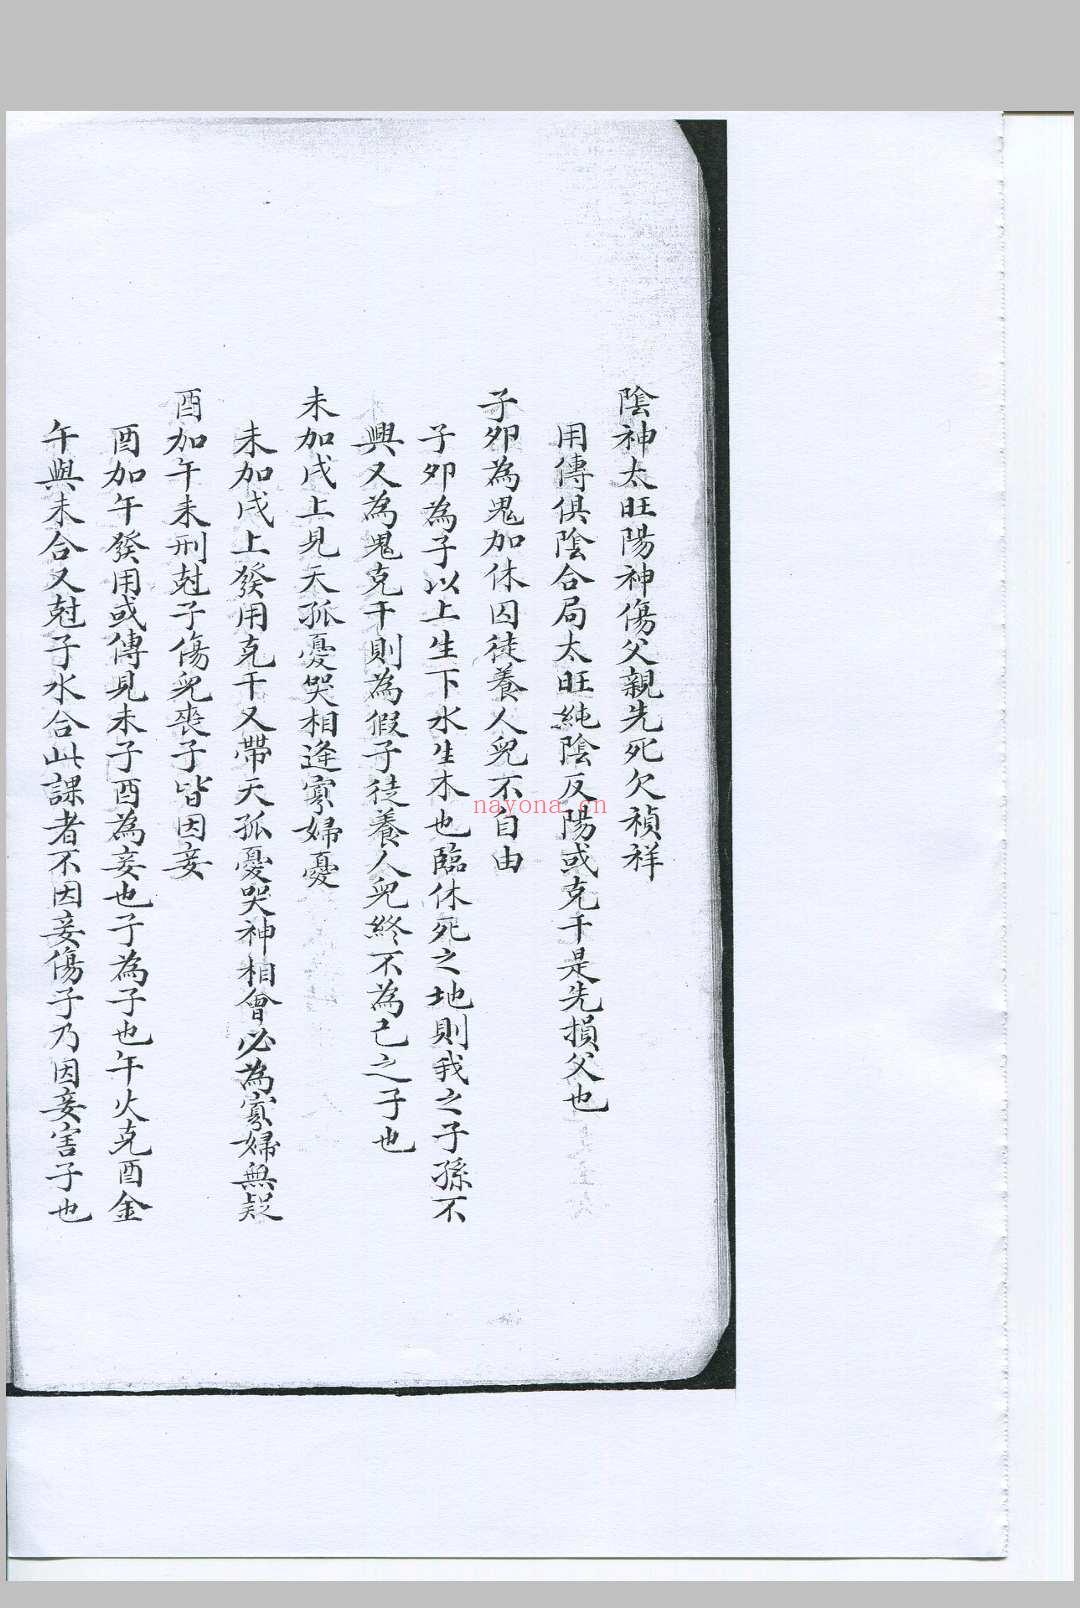 陰神太旺陽神傷父親先死欠禎祥
用傳俱陰合局太旺純陰反陽或克干是先損父也
子卯為鬼加休囚徒養人兒不自由
子卯為子以上生下水生木也臨休死之地則我之子孫不
興又為鬼克干則為假子徒養人兒終不為己之子也
未加戌上見天孤憂哭相逢寡婦憂
未加戌上發用克干又帶天孤憂哭神相會必為寡婦無疑
酉加午未刑尅子傷兒喪子皆因妾
酉加午發用或傳見未子酉為妾也子為子也午火克酉金
午與未合又尅子水合此課者不因妾傷子乃因妾害子也
nayona.cn